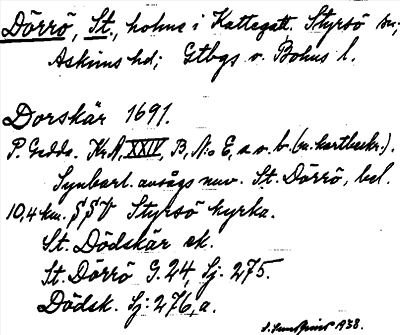 Dörrö, St., holme i Kattegatt. Styrsö sn;
Askims hd; Gtbgs o. Bohus l.
Dorskär 1691.
P. Gedda. KrA, XXIV, B, N:o E, a o. b. (m. kartbeskr.).
Synbarl. avsågs nuv. St. Dörrö, bel.
10,4 km. SSV Styrsö kyrka.
St. Dödskär ek.
St. Dörrö G. 24, Sj. 275.
Dödsk. Sj. 276, a.
1938.